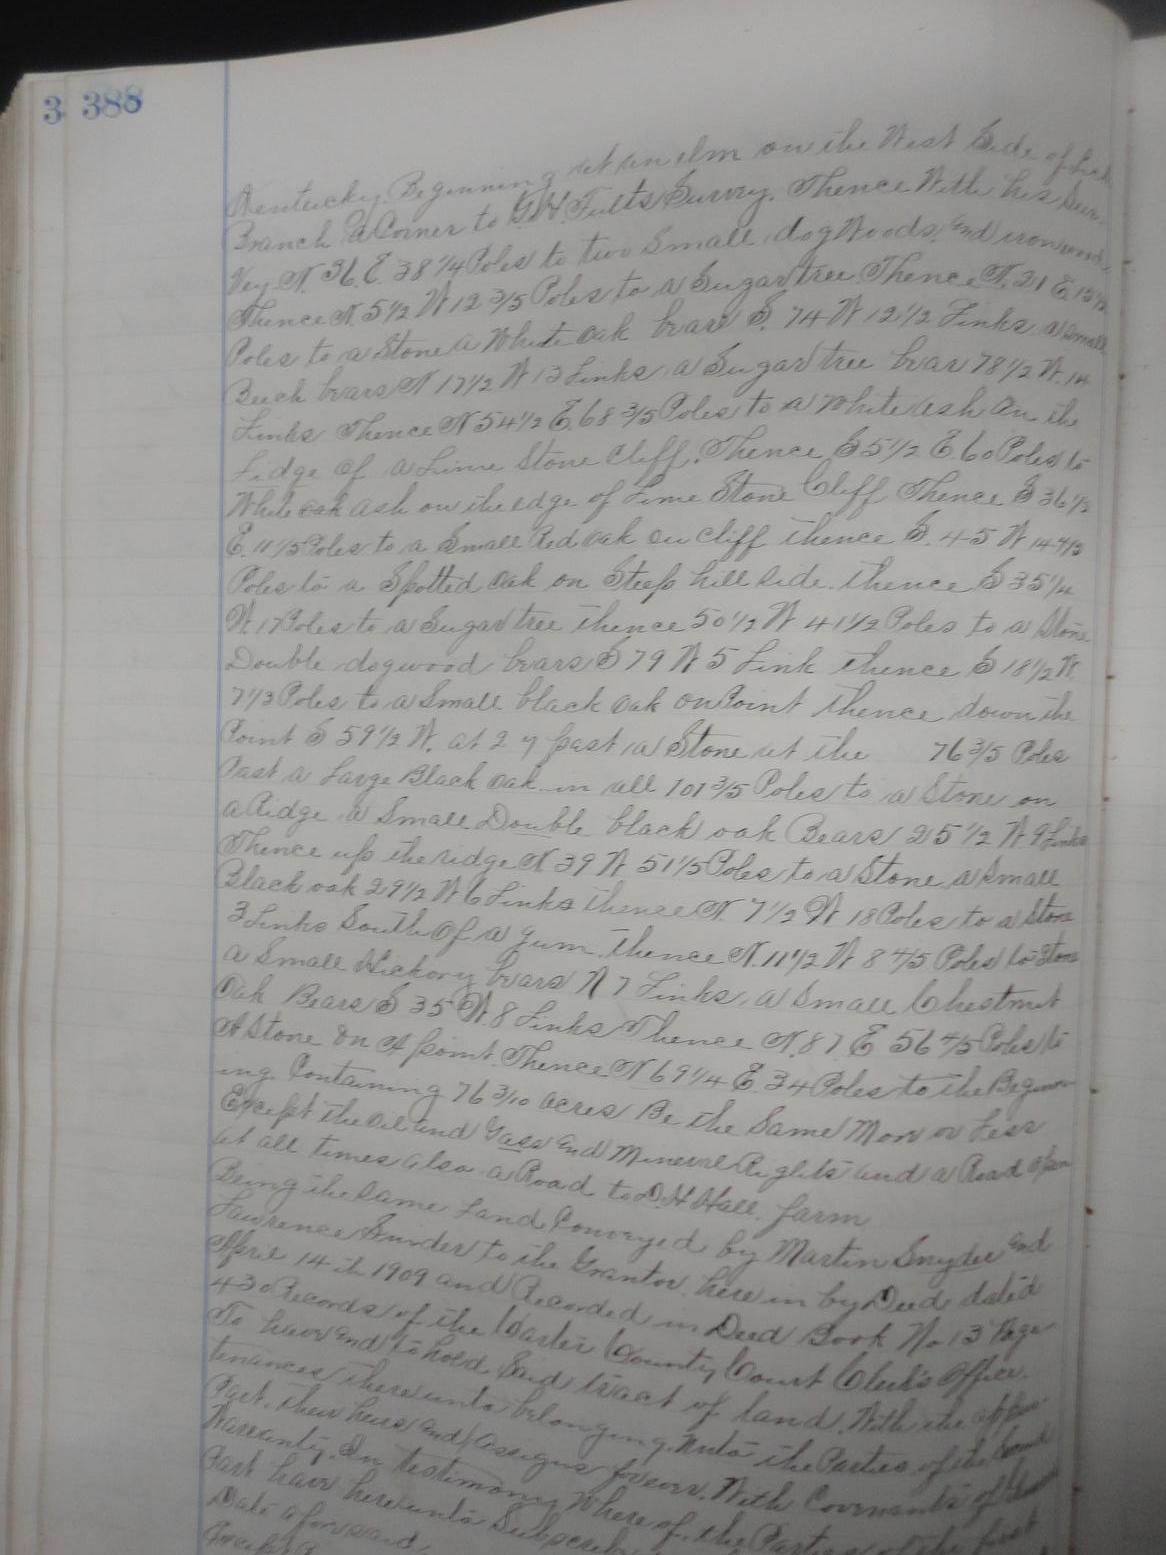 3 388
Kentucky. Beginning at an elm on the West Side of
Branch a Corner to G.W. Fults Survey. Thence With his Sur-
vey N. 36. E. 38 1/4 Poles to two Small dogwoods, and ironwood
Thence N. 5 1/2 W 12 3/5 Poles to a Sugartree Thence N. 21 E. 15 1/2
Poles to a Stone a White oak bears S. 74 W 12 1/2 Links a Small
Beech bears N 17 1/2 W 13 Links, a Sugar tree bears 78 1/2 W. 14
Links Thence N 54 1/2 E. 68 3/5 Poles to a White ash On the
Edge Of a Lime Stone Cliff. Thence S 5 1/2 E. 60 Poles to
White oak ash on the edge of Lime Stone Cliff Thence S 36 1/2
E. 11 1/5 Poles to a Small Red oak on Cliff thence S. 45 W 14
Poles to a Spotted Oak on Steep hill side. thence S 35 1/4
W. 17 Poles to a Sugar tree thence 50 1/2 W 41 1/2 Poles to a Stone
Double dogwood bears S 79 W 5 Link thence S 18 1/2 W.
7 1/3 Poles to a Small black oak on Point thence down the
Point S 59 1/2 W. at 27 past a Stone at the 76 3/5 Poles
Past a Large Black oak in all 101 3/5 Poles to a Stone on
a Ridge, a Small Double black oak Bears 25 1/2 W 9 Links
Thence up the ridge N 39 W 51 1/5 Poles to a Stone a Small
Black oak 29 1/2 W 6 Links thence N 7 1/2 W 18 Poles to a Stone
3 Links South Of a gum. thence N. 11 1/2 W 8 4/5 Poles to Stone
a Small Hickory bears N 7 Links, a Small Chestnut
Oak Bears S 35 W. 8 Links Thence N. 87 E 56 4/5 Poles to
A Stone On A point. Thence N 69 1/4 E. 34 Poles to the Beginn-
ing. Containing 76 3/10 acres Be the Same More or Less
Except the Oil and Gass and Mineral Rights and a Road open
at all times also a Road to D.H Hall. farm
Being the Same Land Conveyed by Martin Snyder and
Lawrence to the Grantor here in by Deed dated
April 14 th 1909 and Recorded in Deed Book No 13 Page
430 Records of the Carter County Court Clerk's Office.
To have and to hold Said tract of land, With the appur-
tenances thereunto belonging. Unto the Parties of the Second
Part. their heirs and Assigns forever. With Covenants of
Warranty. In testimony Where of. the Parties of the first
Part have hereunto
Date aforesaid